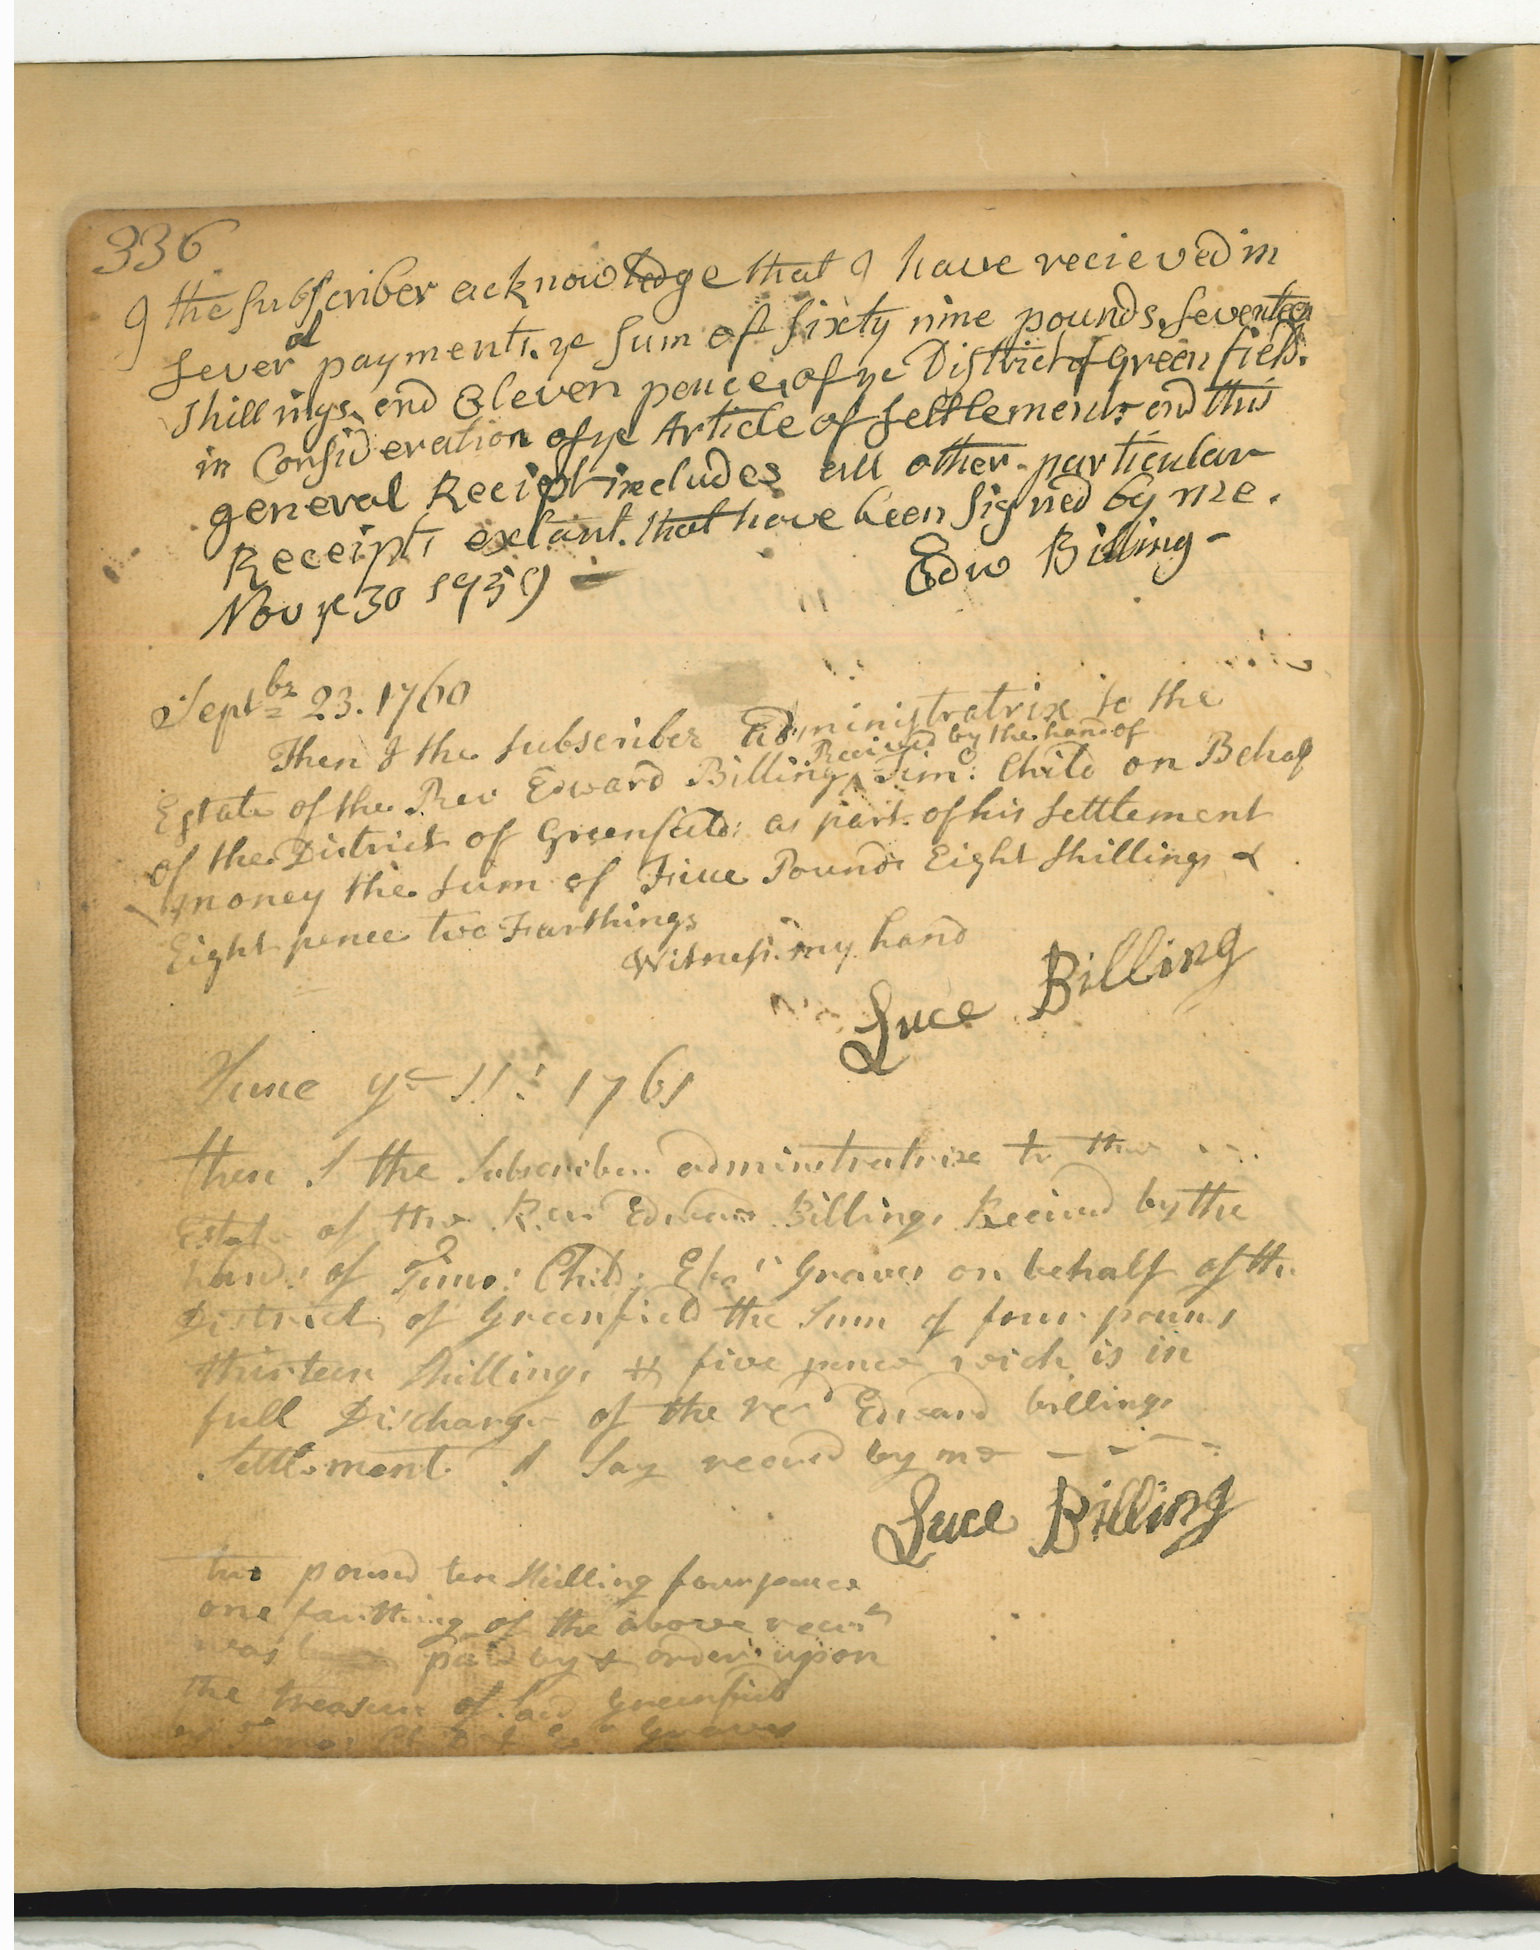 336
I the Subscriber acknowledge that I have recieved in
Several payments, ye Sum of Sixty nine pounds, Seventeen
Shillings, and Eleven pence, of ye District of Greenfield.
in Consideration of ye Article of Settlement: and this
general Receipt includes all other particular
Receipts extant. that have been Signed by me.
Nov ye 30 1759 Edw Billing -
Septbr 23. 1760
Then I the Subscriber Administratrix to the
Estate of the Rev Edward Billing, Received by the hand of Timo: Child on Behalf
of the District of Greenfield: as part of his Settlement
money the Sum of Five Pounds Eight Shillings &
Eight pence two Farthings
Witness my hand
Luce Billing
June ye 11: 1761
then I the Subscriber administratrix to the
Estate of the Rev Edward Billings Received by the
hands of Timo: Child: Ebnr Graves on behalf of the
District of Greenfield the Sum of four pouns
thirteen Shillings & five pence wich is in
full Discharge of the Revd Edward billings
Settlement I Say recevd by me
Luce Billing
two pound ten Shilling four pence
one farthing of the above
was paid by order upon
the treasure of Said Greenfield
Timo: Graves